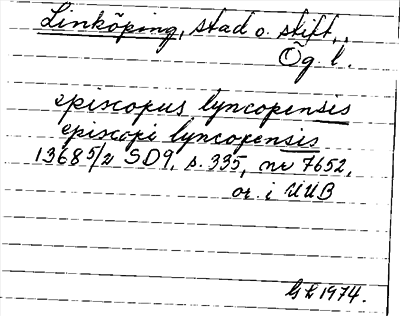 Linköping, stad o. stift,
Ög l.
episcopus lyncopensis
episcopi lyncopensis
1368 5/2 SD9, s. 335, nr 7652,
or. i UUB
GL 1974.